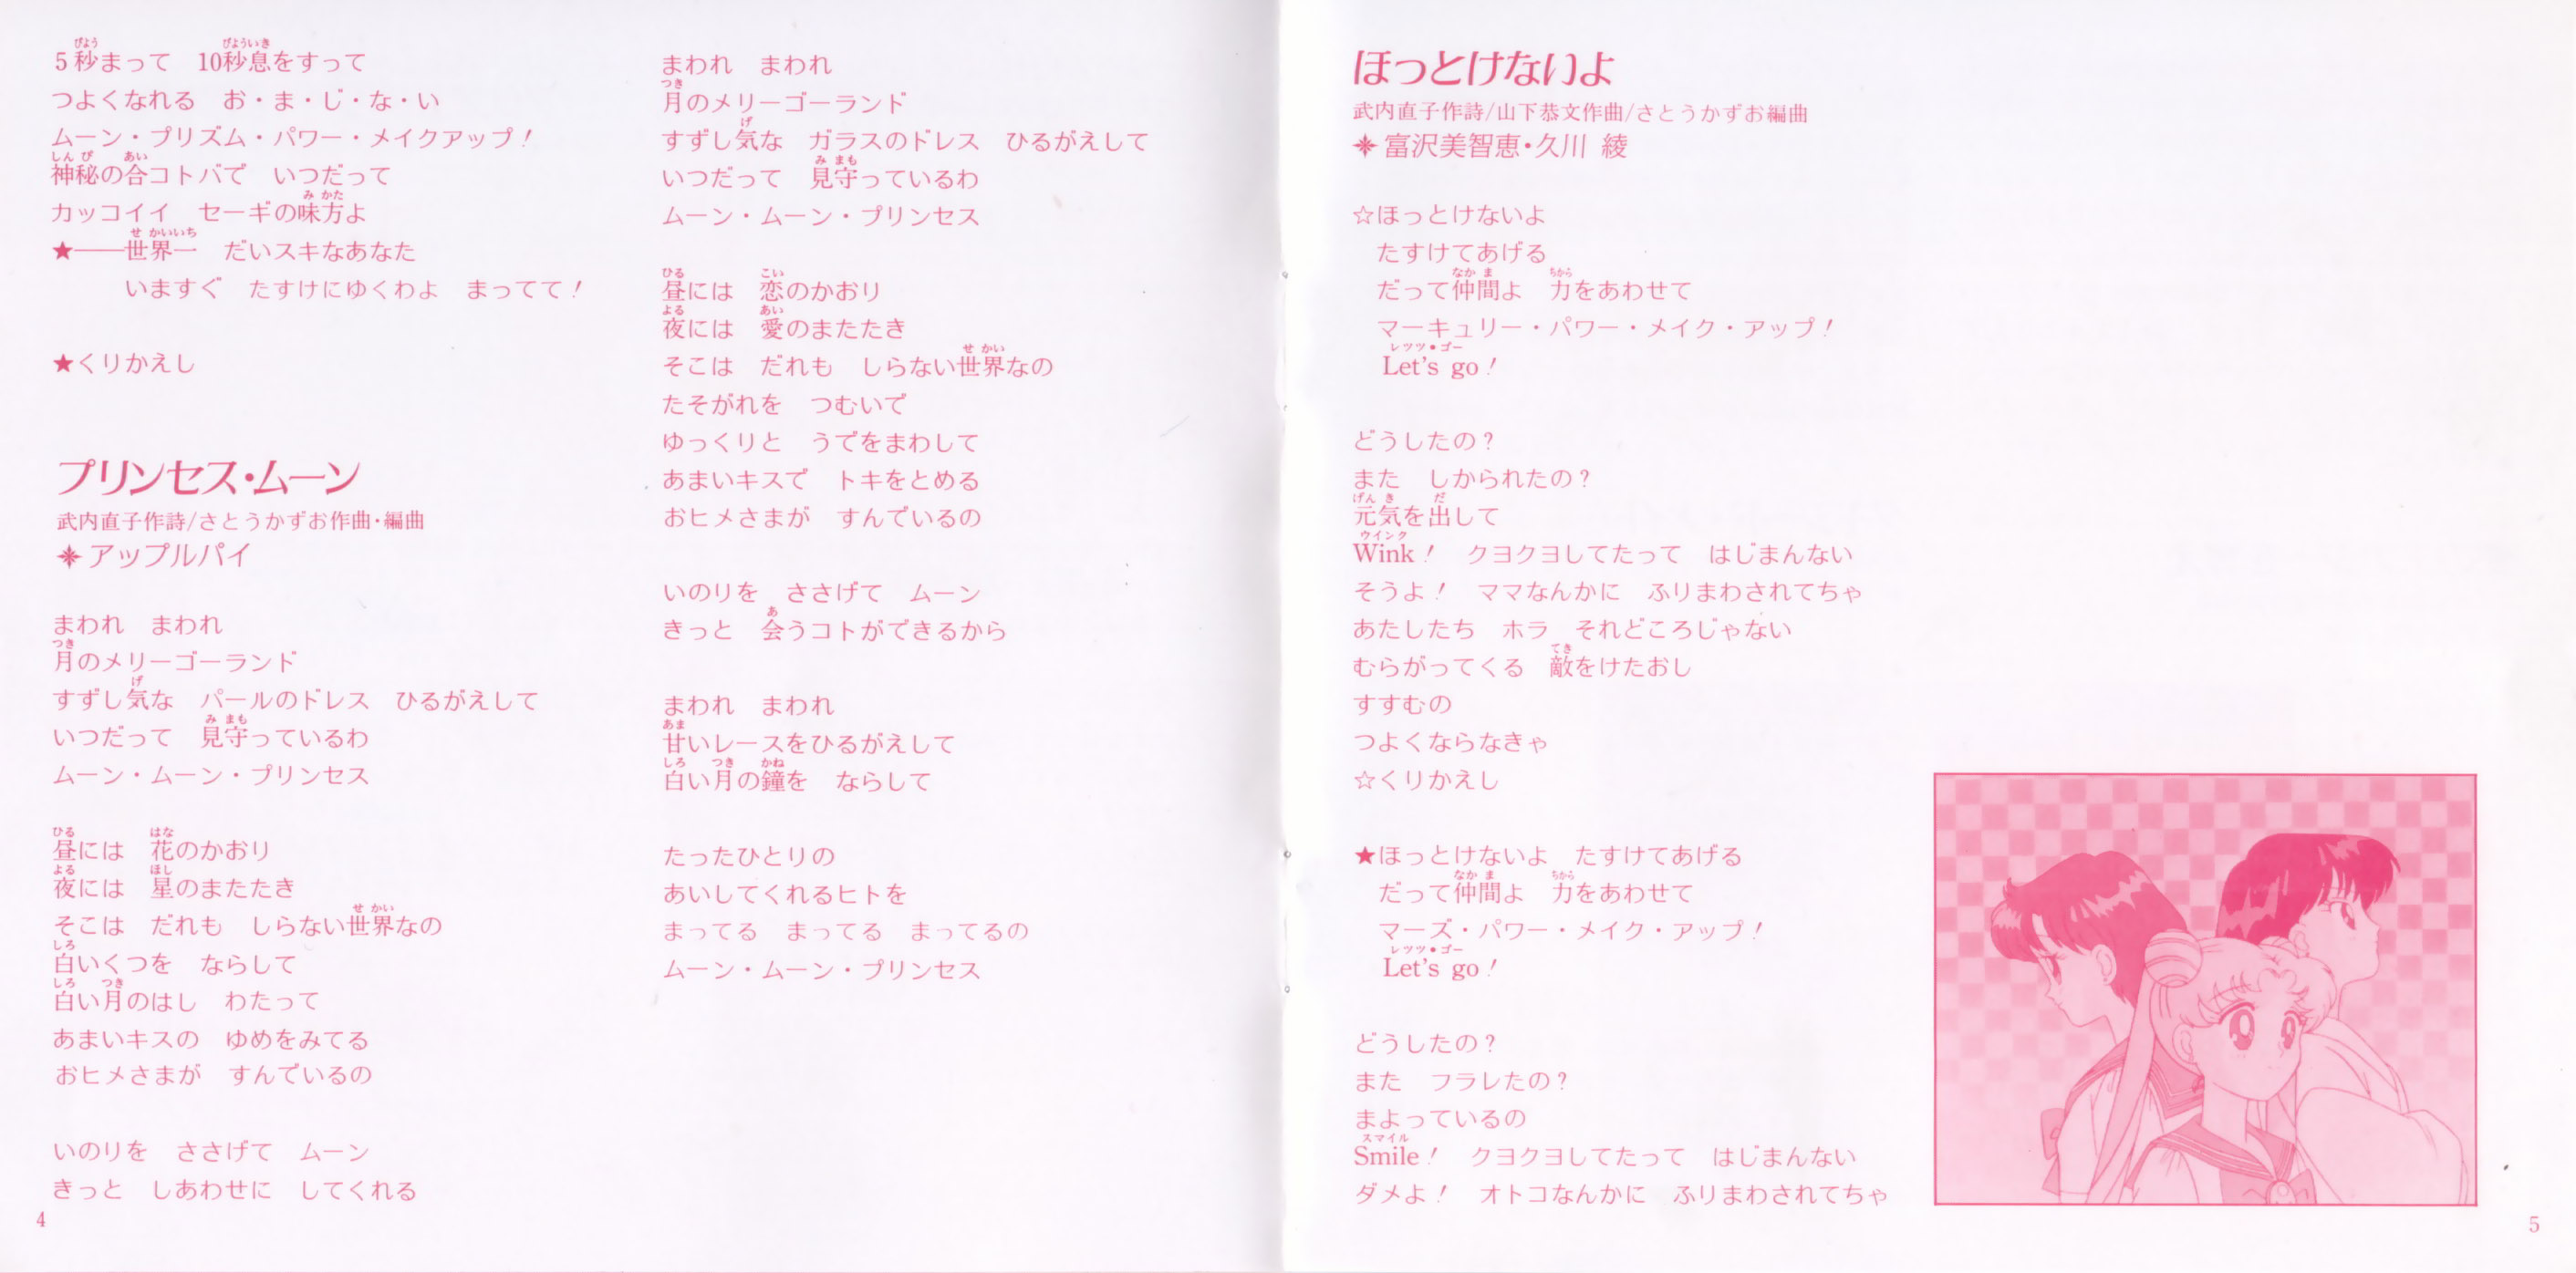 5秒まって　10秒息をすって
つよくなれる　お・ま・じ・な・い
ムーン・プリズム・パワー・メイクアップ！
神秘の合コトバで　いつだって
カッコイイ　セーギの味方よ
★──世界一　だいスキなあなた
いますぐ　たすけにゆくわよ　まってて！
★くりかえし
プリンセス・ムーン
武内直子作詩/さとうかずお作曲・編曲
アップルパイ
まわれ　まわれ
月のメリーゴーランド
すずし気な　パールのドレス　ひるがえして
いつだって　見守っているわ
ムーン・ムーン・プリンセス
昼には　花のかおり
夜には　星のまたたき
そこは　だれも　しらない世界なの
白いくつを　ならして
白い月のはし　わたって
あまいキスの　ゆめをみてる
おヒメさまが　すんでいるの
いのりを　ささげて　ムーン
きっと　しあわせに　してくれる
4
まわれ　まわれ
月のメリーゴーランド
すずし気な　ガラスのドレス　ひるがえして
いつだって　見守っているわ
ムーン・ムーン・プリンセス
昼には　恋のかおり
夜には　愛のまたたき
そこは　だれも　しらない世界なの
たそがれを　つむいで
ゆっくりと　うでをまわして
あまいキスで　トキをとめる
おヒメさまが　すんでいるの
いのりを　ささげて　ムーン
きっと　会うコトができるから
まわれ　まわれ
甘いレースをひるがえして
白い月の鐘を　ならして
たったひとりの
あいしてくれるヒトを
まってる　まってる　まってるの
ムーン・ムーン・プリンセス
ほっとけないよ
武内直子作詩/山下恭文作曲/さとうかずお編曲
富沢美智恵・久川 綾
☆ほっとけないよ
たすけてあげる
だって仲間よ　力をあわせて
マーキュリー・パワー・メイク・アップ！
Let's go！
どうしたの？
また　しかられたの？
元気を出して
Wink！　クヨクヨしてたって　はじまんない
そうよ！　ママなんかに　ふりまわされてちゃ
あたしたち　ホラ　それどころじゃない
むらがってくる　敵をけたおし
すすむの
つよくならなきゃ
☆くりかえし
★ほっとけないよ　たすけてあげる
だって仲間よ　力をあわせて
マーズ・パワー・メイク・アップ！
Let's go！
どうしたの？
また　フラレたの？
まよっているの
Smile！　クヨクヨしてたって　はじまんない
ダメよ！　オトコなんかに　ふりまわされてちゃ
5